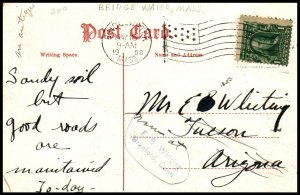 BRIDGEWATER, MASS.
Post Card
Writing Space.
Name and Address
9-AM
19 08
MASS.
Sandy soil
but
good roads
are
maintained
To-day-
Mr E B Whiting
Tucson
Arizona